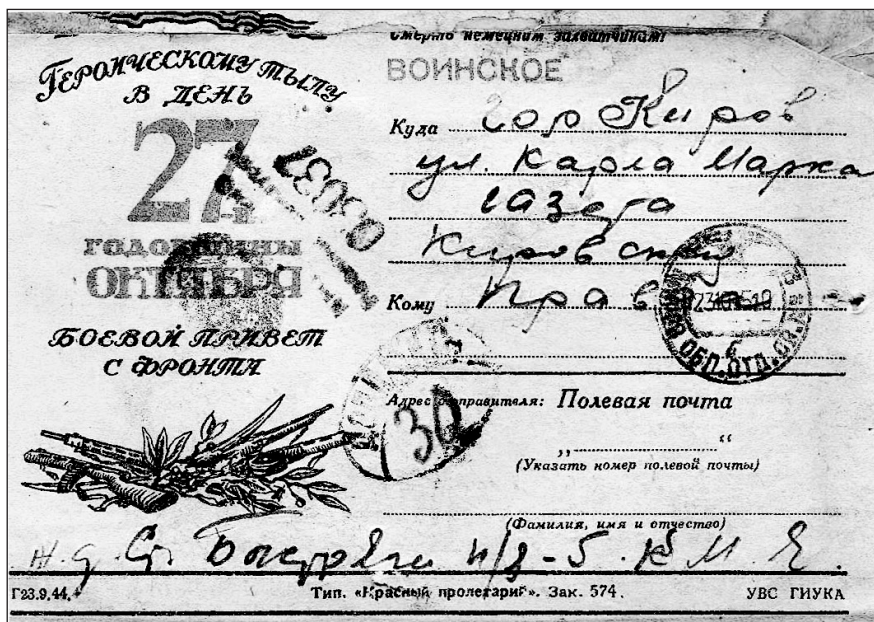 Смерть немецким захватчикам!
ГЕРОИЧЕСКОМУ ТЫЛУ
В ДЕНЬ
27
годовщины
ОКТЯБРЯ
БОЕВОЙ ПРИВЕТ
С ФРОНТА
ВОИНСКОЕ
Куда гор Киров
ул. Карла Маркса
газета
Кировская
Кому Прав
Адрес отправителя: Полевая почта
„ “
(Указать номер полевой почты)
(Фамилия, имя и отчество)
ж.д. Ст. Быстряги п/я-5. К М. Е.
03037
30
Г23.9.44.
Тип. «Красный пролетарий». Зак. 574.
УВС ГИУКА